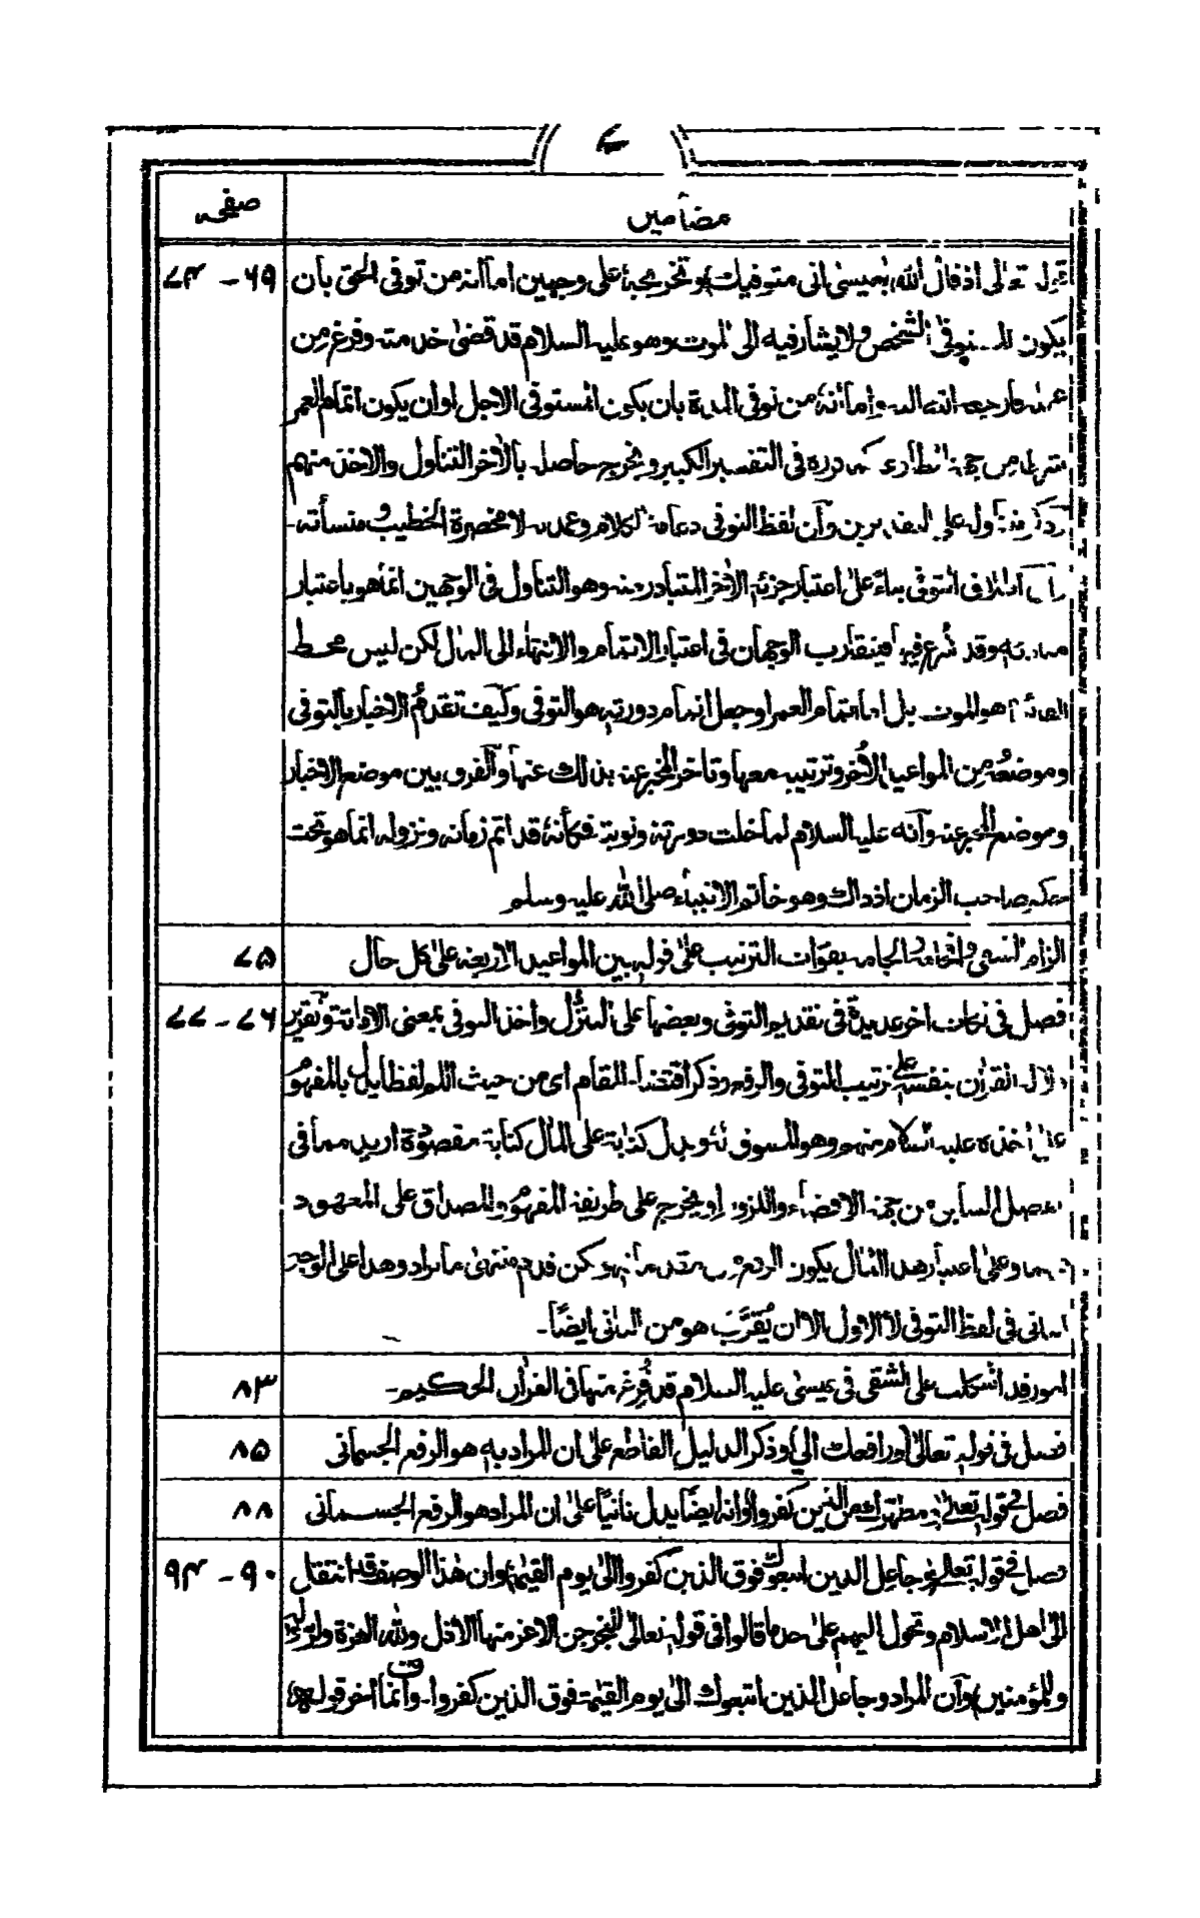 ۷
مضامين صفحه
قوله تعالى اذ قال الله يٰعيسىٰ انى متوفيك وتخريجه على وجهين اما انه من توفى الحق بان ۶۹ - ۷۴
يكون المتوفى الشخص ولا يشار فيه الى الموت وهو عليه السلام قد قضىٰ خدمته وفرغ من
الله اليه واما انه من توفى المدة بان يكون المستوفى الاجل او ان يكون اتمام العمر
من جهة فى التفسير الكبير ويخرج حاصله بالأخر التناول والاخذ منهم
وآن لفظ التوفى دعامة الكلام وعمدته لا مخصرة الخطيب ومنسأته -
التوفى بناءً على اعتبار جزئه الأخر المتبادر منه وهو التناول فى الوجهين انما هو باعتبار
وقد شرع فيه فيتقارب الوجهان فى اعتبار الاتمام والانتهاء الى المآل لكن ليس محط
هو الموت بل اما اتمام العمر او جعل اتمام دورته هو التوفى وكيف تقدم الاخبار بالتوفى
وموضعه من المواعيد الأخر وترتيبه معها وتاخر المخبر عنه بذلك عنها والفرق بين موضع الاخبار
وموضع المخبر عنه وآنه عليه السلام لما خلت دورته ونوبته فكأنه قد اتم زمانه ونزوله انما هو تحت
حكم صاحب الزمان اذ ذاك وهو خاتم الانبياء صلى الله عليه وسلم
الزام الشقى والجامه بفوات الترتيب علىٰ قوله بين المواعيد الاربعة علىٰ كل حال ۷۵
فصل فى نكات اخر عديدة فى تقديم التوفى وبعضها على التنزل واخذ التوفى بمعنى الاماتة وتقرير ۷۶ - ۷۷
دلالة القرآن بنفسه على ترتيب التوفى والرفع وذكر اقتضاء المقام اى من حيث اللم لفظ يدل بالمفهوم
على اخذه عليه السلام منهم وهو المسوق له ويدل كناية على المآل كناية مقصودة اريد مما فى
الفصل السابق من جهة الاقتضاء واللزوم او يخرج على طريقة المفهوم والمصداق على المعهود
وعلىٰ اعتبار هذا المآل يكون الرفع ولكن قدم منتهىٰ ما يراد وهذا على الوجه
الثانى فى لفظ التوفى لا الاول الا ان يُقَرَّبَ هو من الثانى ايضًا -
امور قد اشكلت على الشقى فى عيسىٰ عليه السلام قد فُرِغ منها فى القرآن الحكيم - ۸۳
فصل فى قوله تعالىٰ ورافعك الي وذكر الدليل القاطع علىٰ ان المراد به هو الرفع الجسمانى ۸۵
فصل فى قوله تعالىٰ ومطهرك من الذين كفروا وانه ايضًا يدل ثانيًا علىٰ ان المراد هو الرفع الجسمانى ۸۸
فصل فى قوله تعالىٰ وجاعل الذين اتبعوك فوق الذين كفروا الىٰ يوم القيٰمة وان هٰذا الوصف قد انتقل ۹۰ - ۹۴
الىٰ اهل الاسلام وتحول اليهم علىٰ حد ما قالوا فى قوله تعالىٰ ليخرجن الاعز منها الاذل ولله العزة ولرسوله
وللمؤمنين وآن المراد وجاعل الذين اتبعوك الىٰ يوم القيٰمة فوق الذين كفروا - وانما اخر قوله